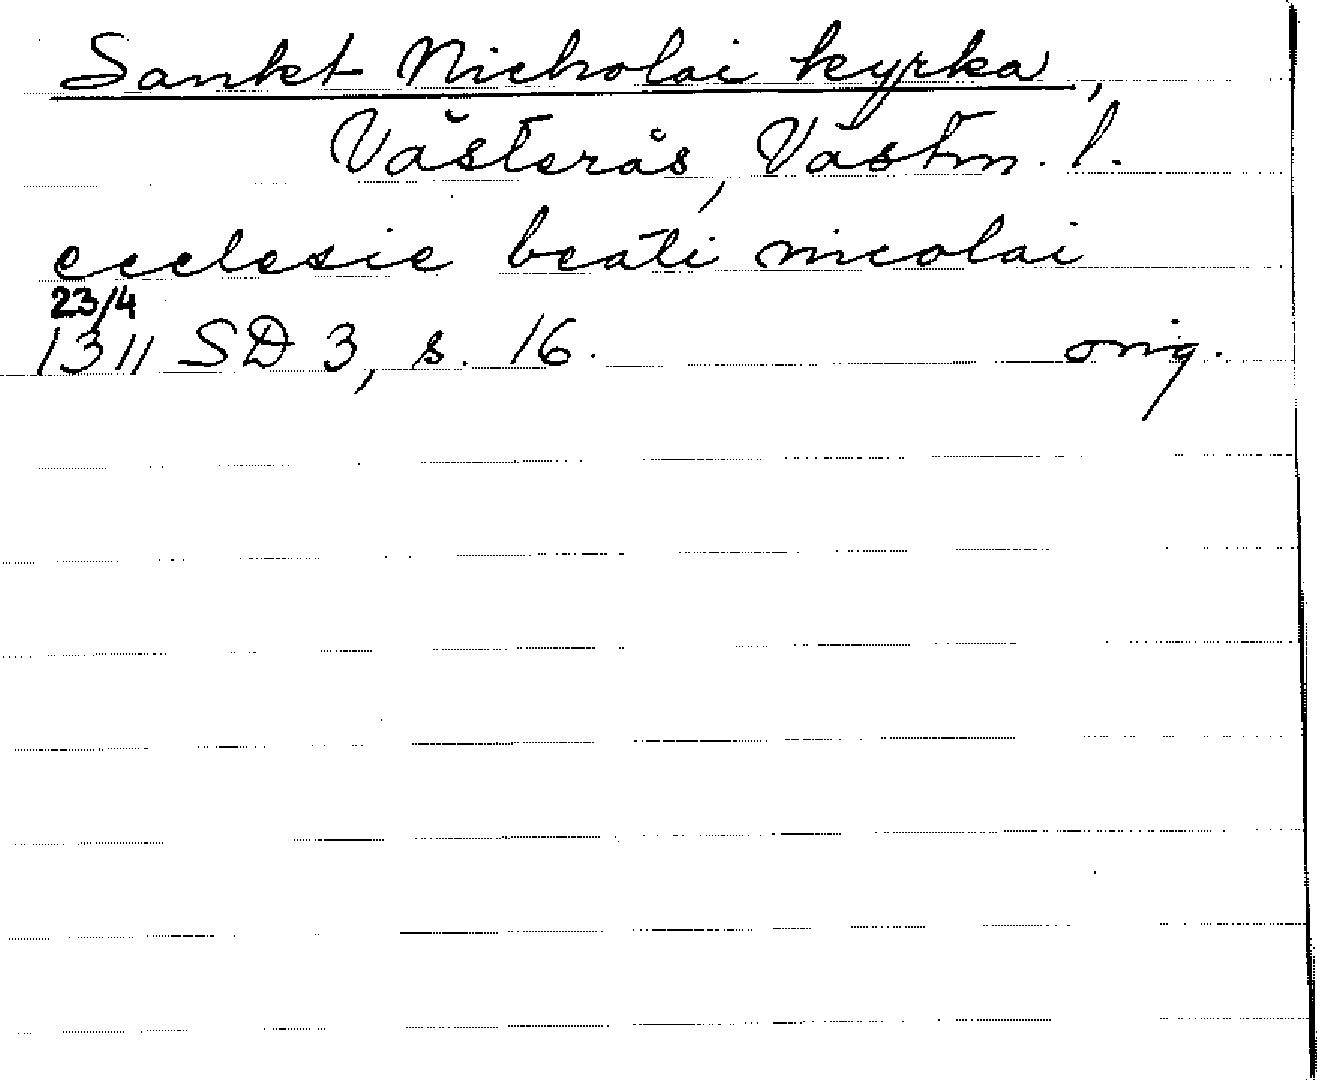 Sankt Nicholai kyrka,
Västerås, Västm. l.
ecclesie beati nicolai
23/4
1311 SD 3, s. 16. orig.